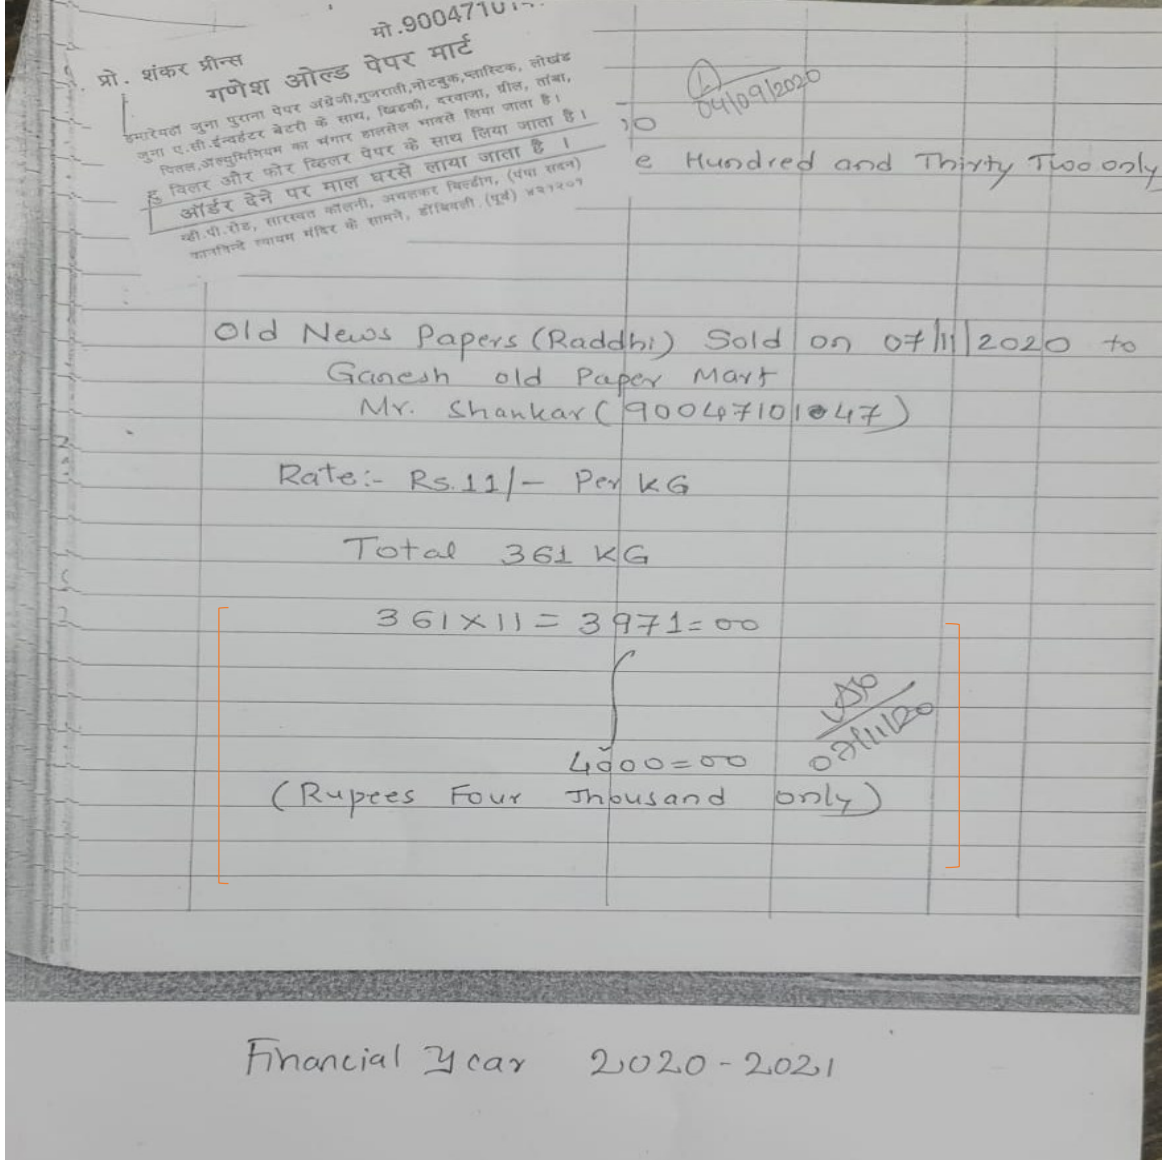 मो.9004710
प्रो. शंकर प्रीन्स
गणेश ओल्ड पेपर मार्ट
हमारेयहा जुना पुराना पेपर अंग्रेजी,गुजराती,नोटबुक,प्लास्टिक, लोखंड
जुना ए.सी.ईन्वर्हटर बेटरी के साथ, खिडकी, दरवाजा, ग्रील, तांबा,
पितल,अल्युमिनियम का भंगार हालसेल भावसे लिया जाता है।
विलर और फोर व्हिलर पेपर के साथ लिया जाता है।
ऑर्डर देने पर माल घरसे लाया जाता है ।
व्ही.पी.रोड, सारस्वत कॉलनी, अचलकर बिल्डींग, (पंपा सदन)
मंदिर के सामने, डोंबिवली (पूर्व) ४२१२०१
1
04/09/2020
e Hundred and Thirty Two only
Old News Papers (Raddhi) Sold on 07/11/2020 to
Ganesh old Paper Mart
Mr. Shankar (90047101047)
Rate:- Rs.11/- Per KG
Total 361 KG
361×11 = 3971=00
4000=00
07/11/20
(Rupees Four Thousand only)
Financial Year 2020-2021